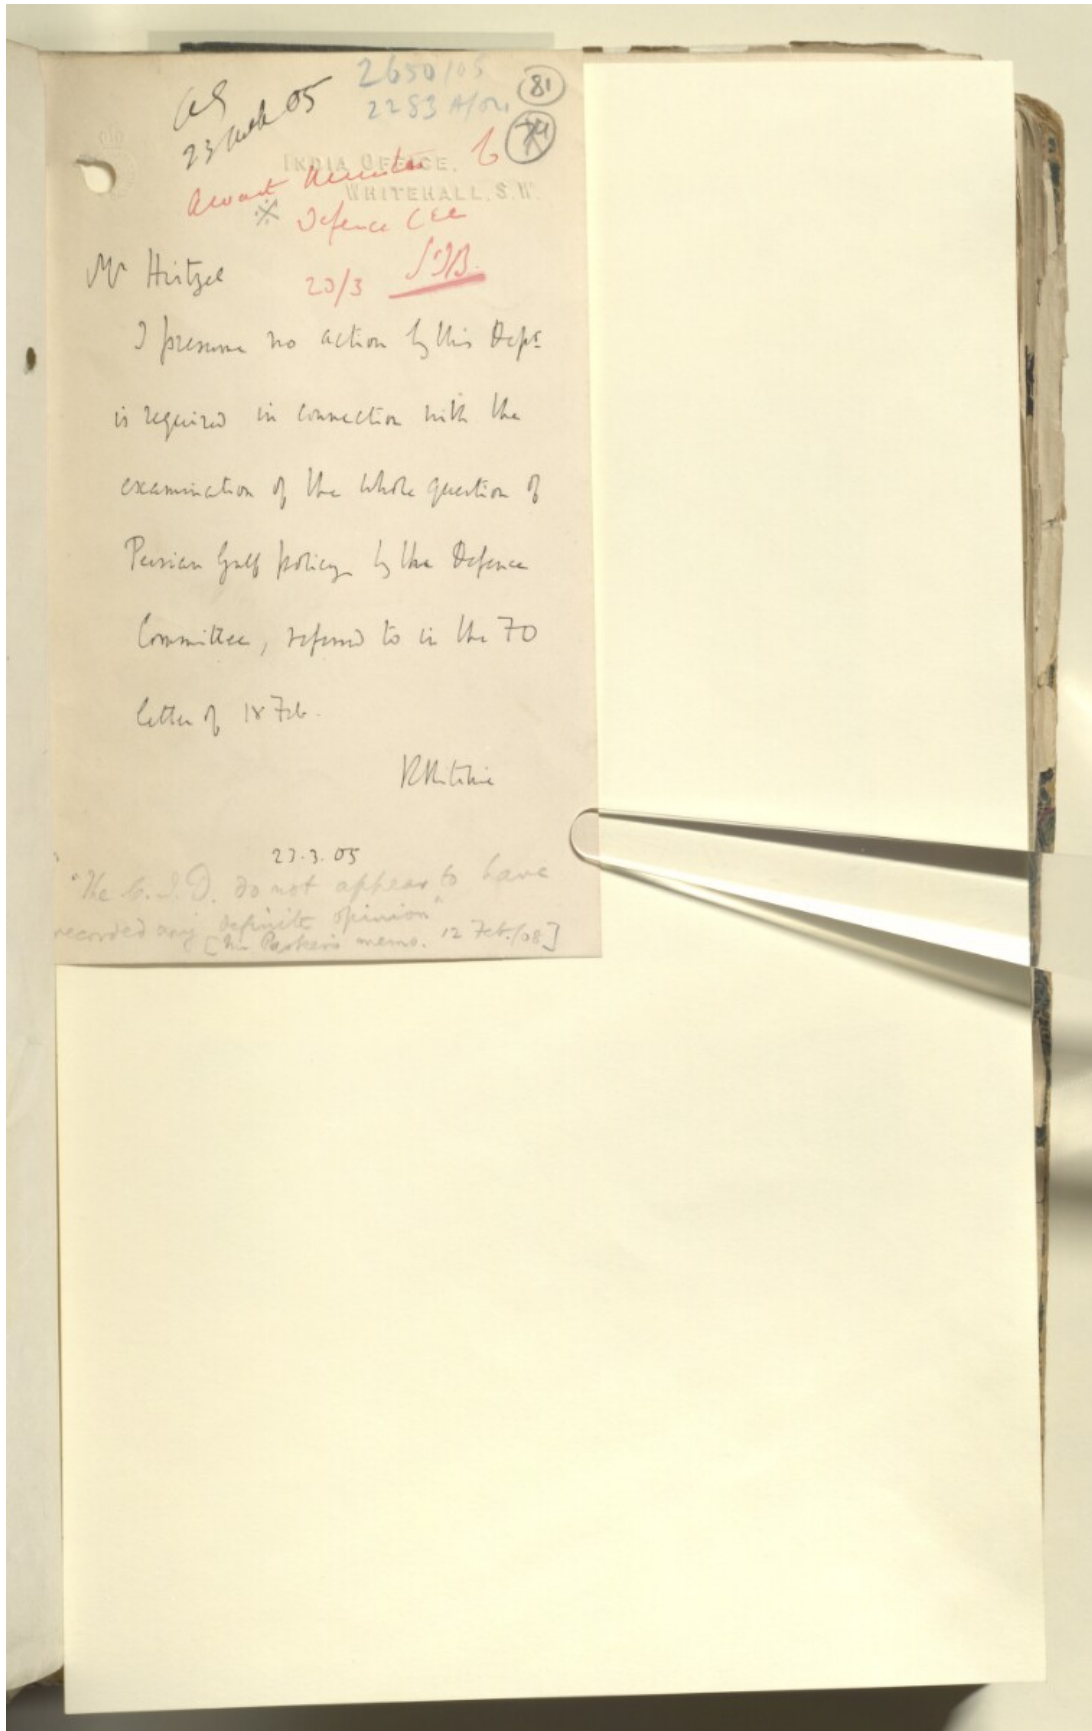 2650/05
2283 A/04
81
23 March 05
INDIA OFFICE,
WHITEHALL, S.W.
Await
Defence Cee
Mr Hirtzel
20/3
I presume no action by this Dept.
is required in connection with the
examination of the whole question of
Persian Gulf policy by the Defence
Committee, referred to in the FO
letter of 18 Feb.
RRitchie
23.3.05
"The C.I.D. do not appear to have
recorded any definite opinion"
[Mr Parker's memo. 12 Feb./08]